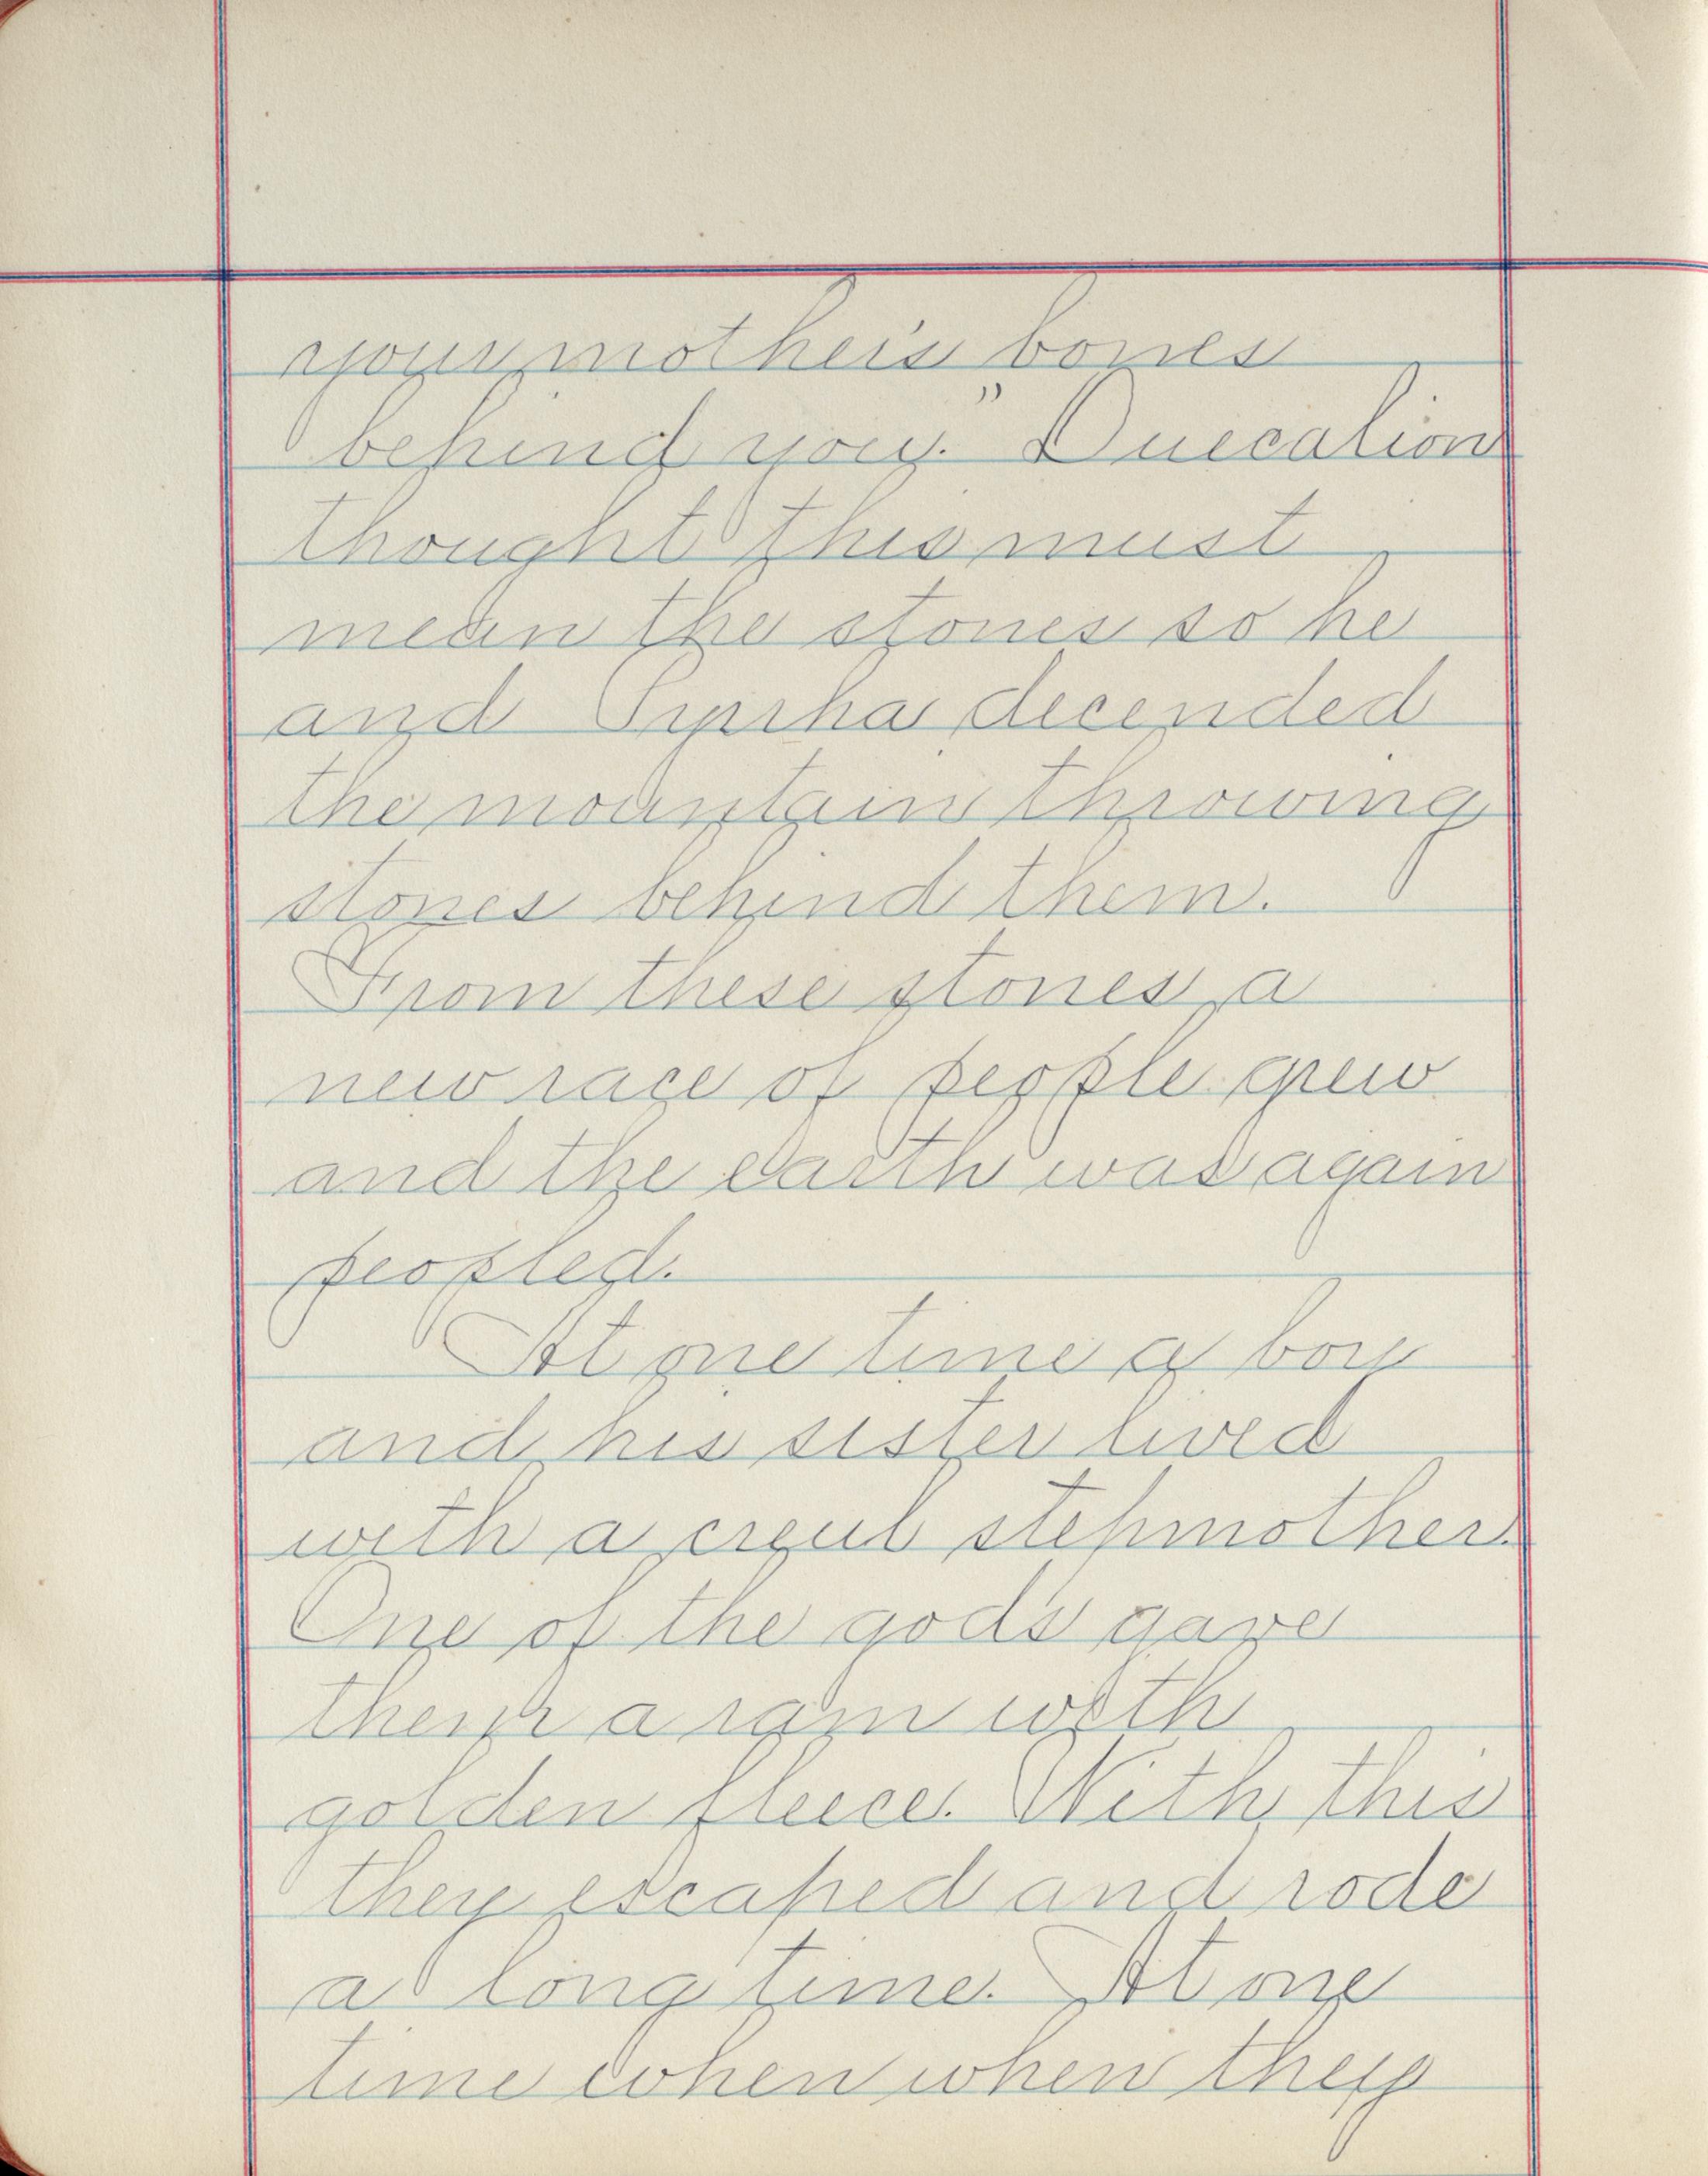 your mother's bones
behind you." Duecalion
thought this must
mean the stones so he
and Pyrrha decended
the mountain throwing
stones behind them.
From these stones a
new race of people grew
and the earth was again
peopled.
At one time a boy
and his sister lived
with a creul stepmother.
One of the gods gave
them a ram with
golden fleece. With this
they escaped and rode
a long time. At one
time when when they